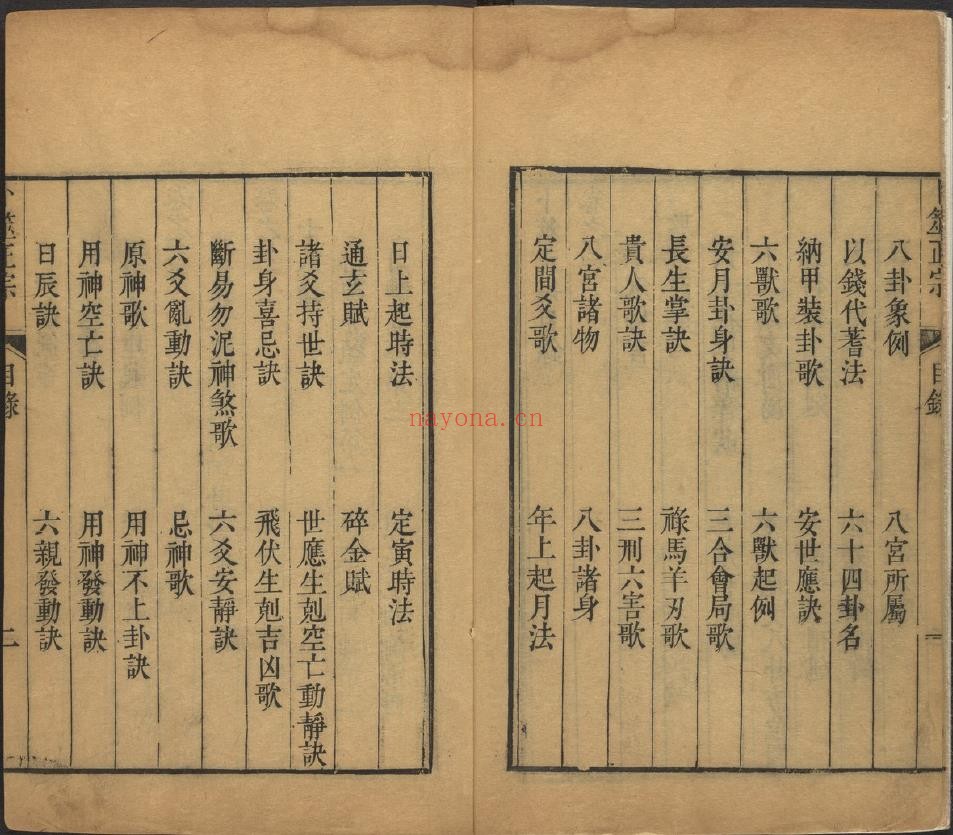 筮正宗
目錄
一
八卦象例 八宮所屬
以錢代蓍法 六十四卦名
納甲裝卦歌 安世應訣
六獸歌 六獸起例
安月卦身訣 三合會局歌
長生掌訣 祿馬羊刃歌
貴人歌訣 三刑六害歌
八宮諸物 八卦諸身
定間爻歌 年上起月法
日上起時法 定寅時法
通玄賦 碎金賦
諸爻持世訣 世應生剋空亡動靜訣
卦身喜忌訣 飛伏生剋吉凶歌
斷易勿泥神煞歌 六爻安靜訣
六爻亂動訣 忌神歌
原神歌 用神不上卦訣
用神空亡訣 用神發動訣
日辰訣 六親發動訣
筮正宗
目錄
二
nayona.cn